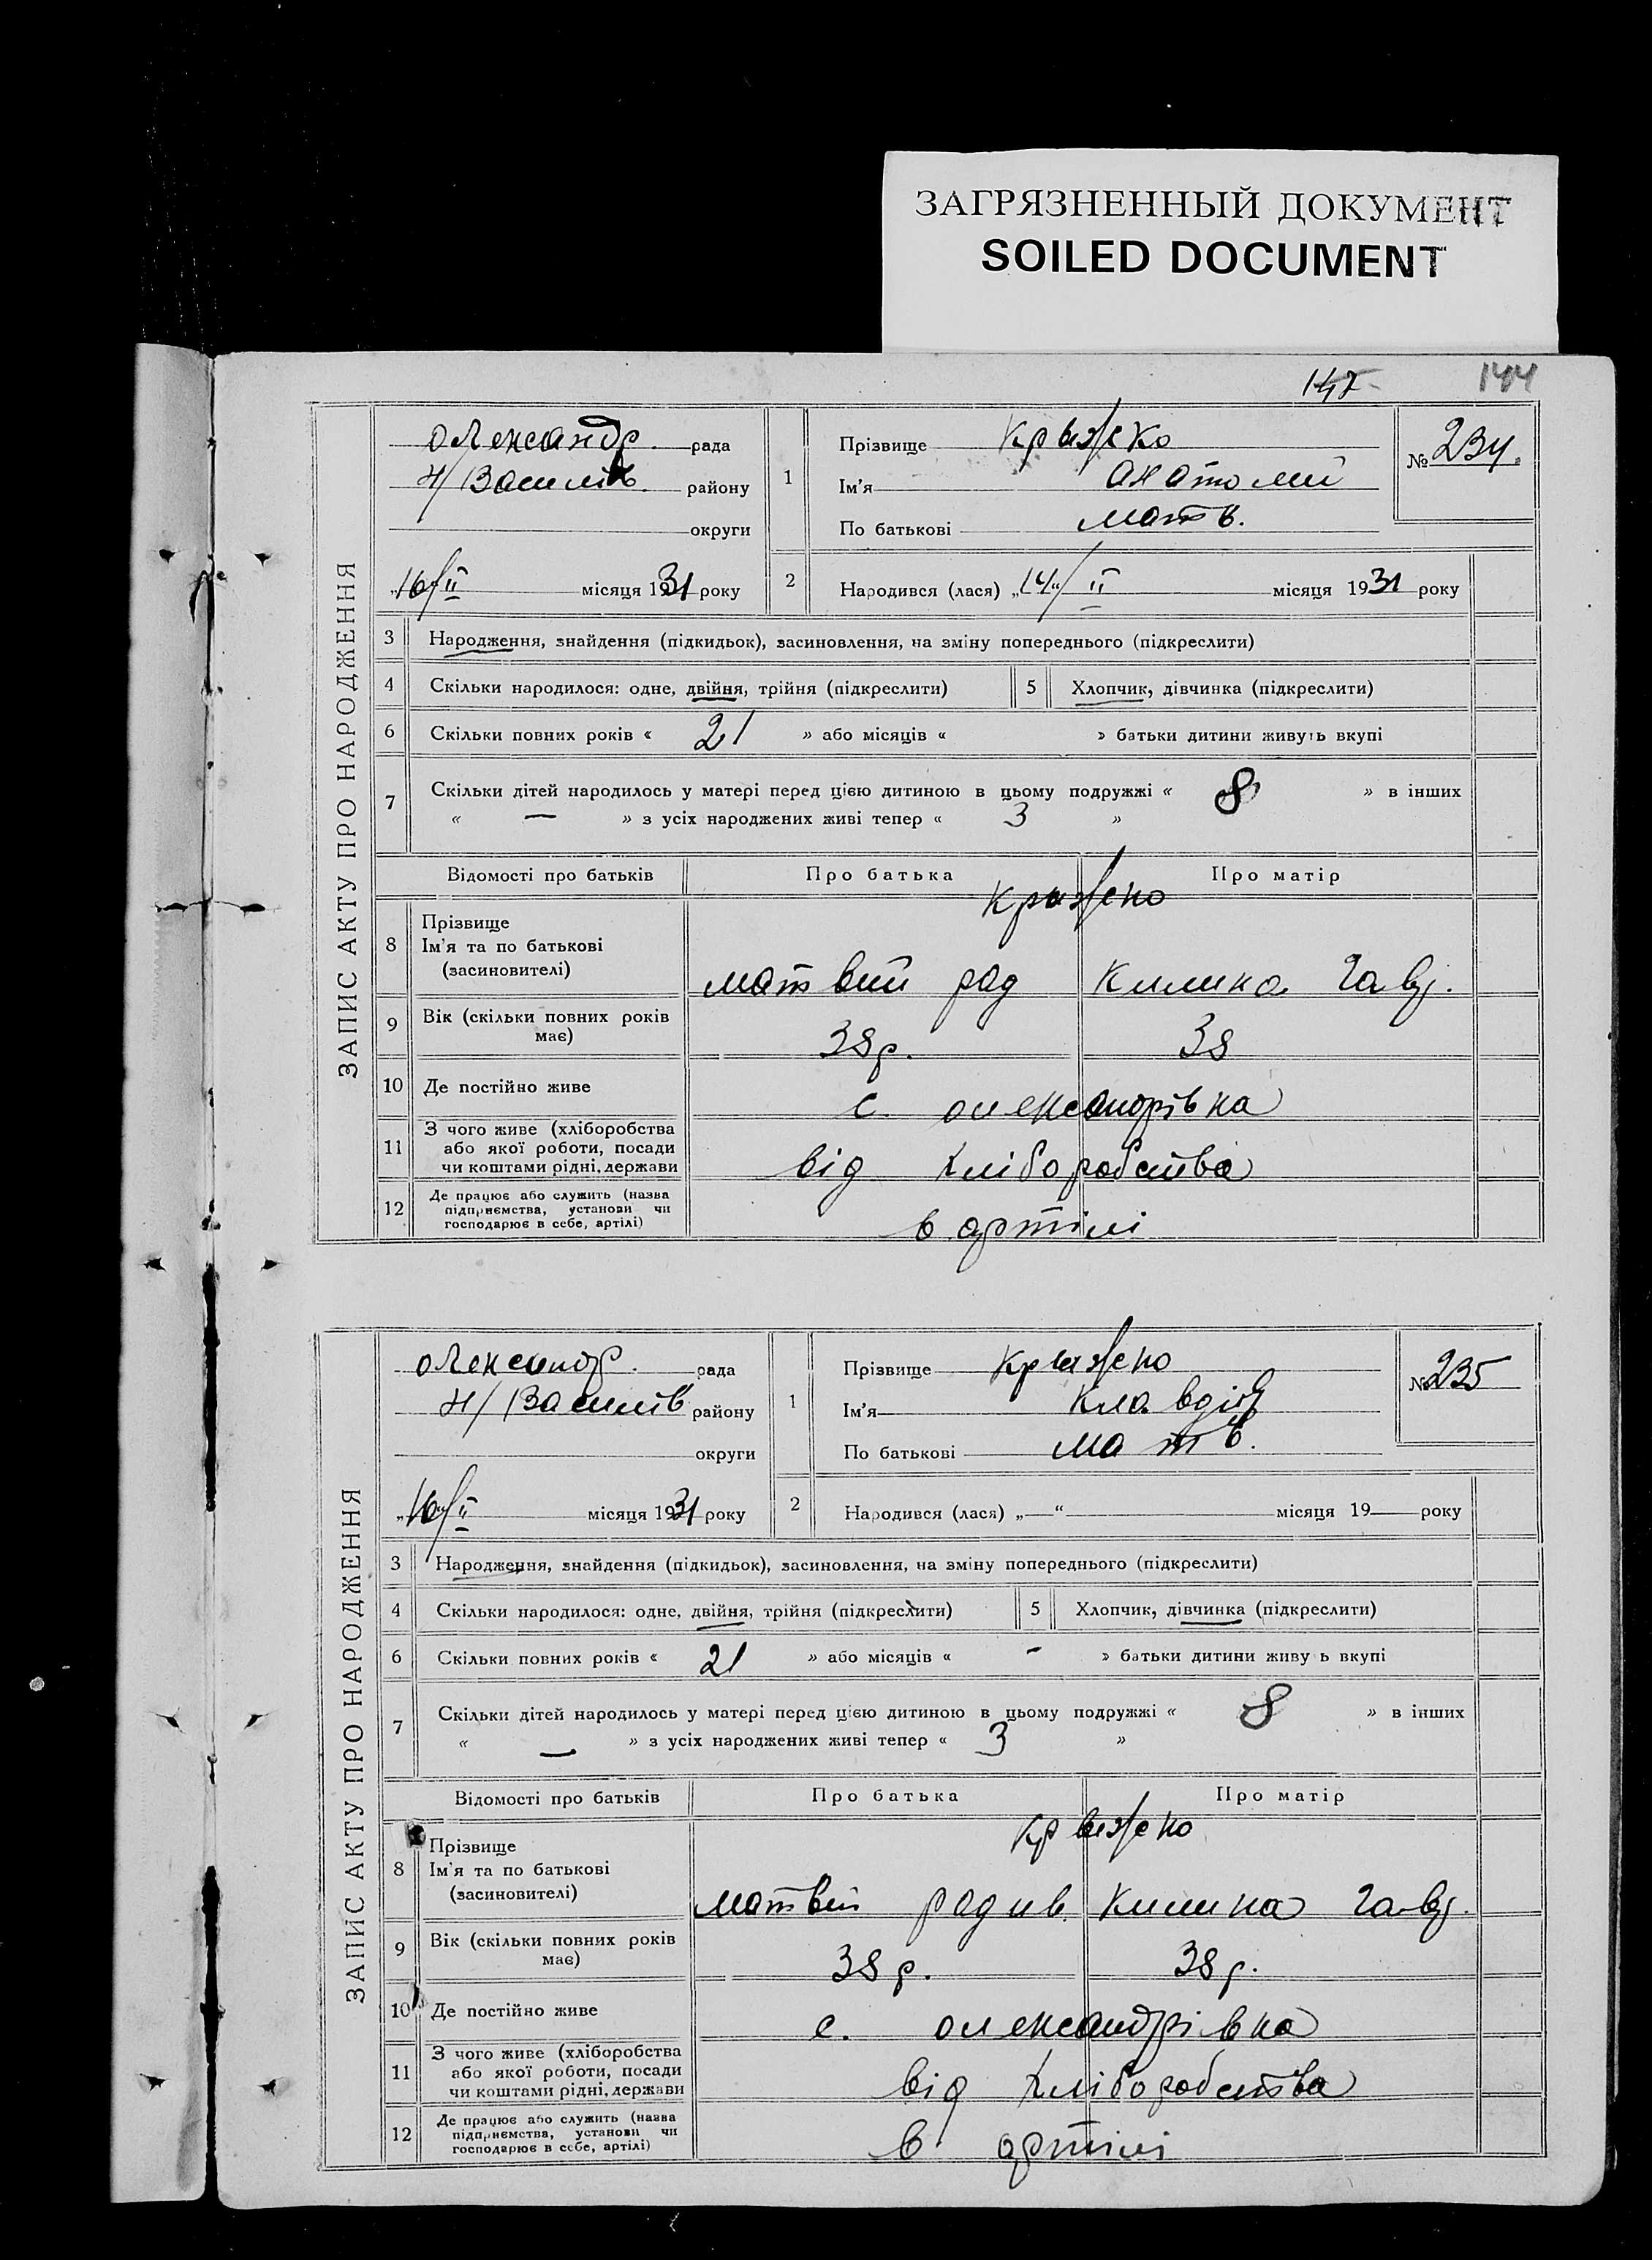 ЗАГРЯЗНЕННЫЙ ДОКУМЕНТ
SOILED DOCUMENT
147 144
ЗАПИС АКТУ ПРО НАРОДЖЕННЯ
олександр. рада
Н/Василів. району
округи
„16/II місяця 1931 року
1
Прізвище Крыжеко
Ім'я Анатолий
По батькові матв.
№ 234.
2 Народився (лася) „14“/II місяця 1931 року
3 Народження, знайдення (підкидьок), засиновлення, на зміну попереднього (підкреслити)
4 Скільки народилося: одне, двійня, трійня (підкреслити) 5 Хлопчик, дівчинка (підкреслити)
6 Скільки повних років « 21 » або місяців « » батьки дитини живуть вкупі
7 Скільки дітей народилось у матері перед цією дитиною в цьому подружжі « 8 » в інших
« — » з усіх народжених живі тепер « 3 »
Відомості про батьків Про батька Про матір
Крыжено
8 Прізвище
Ім'я та по батькові
(засиновителі)
матвий рад Килина Гавр.
9 Вік (скільки повних років
має)
38р. 38
10 Де постійно живе с. олександрівка
11 З чого живе (хліборобства
або якої роботи, посади
чи коштами рідні, держави
від хліборобства
12 Де працює або служить (назва
підприємства, установи чи
господарює в себе, артілі)
в артілі
ЗАПИС АКТУ ПРО НАРОДЖЕННЯ
олександр. рада
Н/Василів району
округи
„16/II місяця 1931 року
1
Прізвище Крыжено
Ім'я Клавдія
По батькові матв.
№ 235
2 Народився (лася) „—“ місяця 19 року
3 Народження, знайдення (підкидьок), засиновлення, на зміну попереднього (підкреслити)
4 Скільки народилося: одне, двійня, трійня (підкреслити) 5 Хлопчик, дівчинка (підкреслити)
6 Скільки повних років « 21 » або місяців « - » батьки дитини живу ь вкупі
7 Скільки дітей народилось у матері перед цією дитиною в цьому подружжі « 8 » в інших
« — » з усіх народжених живі тепер « 3 »
Відомості про батьків Про батька Про матір
Крыжено
8 Прізвище
Ім'я та по батькові
(засиновителі)
матвій радив. Килина Гавр.
9 Вік (скільки повних років
має)
38р. 38р.
10 Де постійно живе с. олександрівка
11 З чого живе (хліборобства
або якої роботи, посади
чи коштами рідні, держави
від хліборобства
12 Де працює або служить (назва
підприємства, установи чи
господарює в себе, артілі)
в артілі